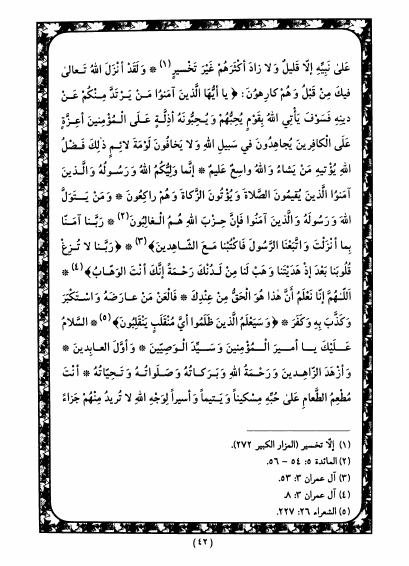 عَلىٰ نَبِيِّهِ إلّا قَليلٌ وَلا زادَ أكْثَرَهُمْ غَيْرَ تَخْسيرٍ(١) * وَلَقَدْ أنْزَلَ اللهُ تَـعالىٰ
فيكَ مِنْ قَبْلُ وَهُمْ كارِهُونَ: ﴿ يا أيُّها الَّذينَ آمَنُوا مَـنْ يَـرْتَدَّ مِـنْكُمْ عَـنْ
دينِهِ فَسَوْفَ يَأْتِي اللهُ بِقَوْمٍ يُحِبُّهُمْ وَيُـحِبُّونَهُ أذِلَّـةٍ عَـلَى الْـمُؤْمِنينَ أعِـزَّةٍ
عَلَى الْكافِرينَ يُجاهِدُونَ في سَبيلِ اللهِ وَلا يَخافُونَ لَوْمَةَ لائِـمٍ ذٰلِكَ فَـضْلُ
اللهِ يُؤْتيهِ مَنْ يَشاءُ وَاللهُ واسِعٌ عَليمٌ * إنَّما وَلِيُّكُمُ اللهُ وَرَسُولُهُ وَالَّـذينَ
آمَنُوا الَّذينَ يُقيمُونَ الصَّلاةَ وَيُؤْتُونَ الزَّكاةَ وَهُمْ راكِعُونَ * وَمَنْ يَـتَوَلَّ
اللهَ وَرَسُولَهُ وَالَّذينَ آمَنُوا فَإنَّ حِزْبَ اللهِ هُـمُ الْـغالِبُونَ﴾(٢) * رَبَّـنا آمَـنّا
بِما أنْزَلْتَ وَاتَّبَعْنَا الرَّسُولَ فَاكْتُبْنا مَـعَ الشّاهِـدينَ﴾(٣) * ﴿رَبَّـنا لا تُـزِغْ
قُلُوبَنا بَعْدَ إذْ هَدَيْتَنا وَهَبْ لَنا مِنْ لَدُنْكَ رَحْمَةً إنَّكَ أنْتَ الْوَهّابُ﴾(٤) *
اَللّٰـهُمَّ إنّا نَعْلَمُ أنَّ هٰذا هُوَ الْحَقُّ مِنْ عِنْدِكَ * فَالْعَنْ مَنْ عارَضَهُ وَاسْتَكْبَرَ
وَكَذَّبَ بِهِ وَكَفَرَ * ﴿وَسَيَعْلَمُ الَّذينَ ظَلَمُوا أيَّ مُنْقَلَبٍ يَنْقَلِبُونَ﴾(٥) * السَّلامُ
عَلَـيْكَ يـا أميرَ الْـمُؤْمِنينَ وَسَـيِّدَ الْـوَصِيّينَ * وَأوَّلَ الْعابِـدينَ *
وَأزْهَدَ الزّاهِـدينَ وَرَحْمَةُ اللهِ وَبَـرَكاتُـهُ وَصَلَواتُـهُ وَتَـحِيّاتُهُ * أنْتَ
مُطْعِمُ الطَّعامِ عَلىٰ حُبِّهِ مِسْكيناً وَيَتيماً وَأسيراً لِوَجْهِ اللهِ لا تُريدُ مِنْهُمْ جَزاءً
(١) إلّا تخسير (المزار الكبير ٢٧٢).
(٢) المائدة ٥: ٥٤ – ٥٦.
(٣) آل عمران ٣: ٥٣.
(٤) آل عمران ٣: ٨.
(٥) الشعراء ٢٦: ٢٢٧.
(٤٢)